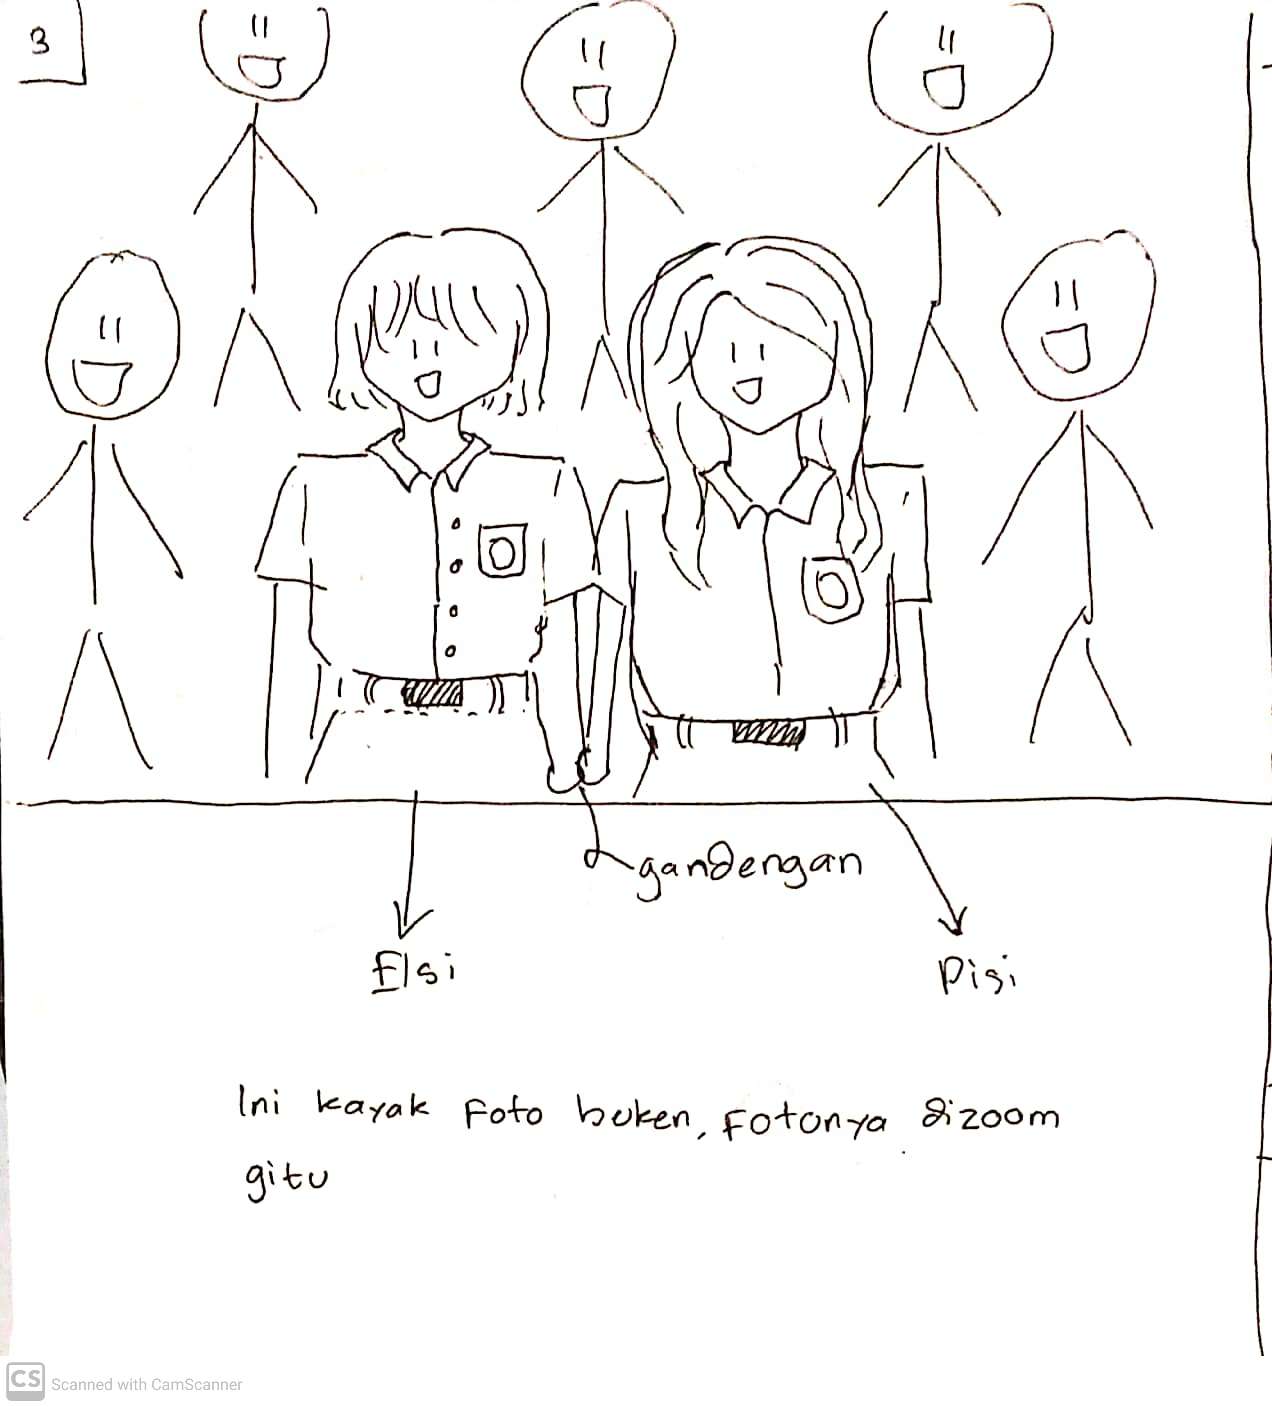 3
gandengan
Elsi
Pisi
Ini kayak Foto buken, Fotonya dizoom
gitu
CS Scanned with CamScanner